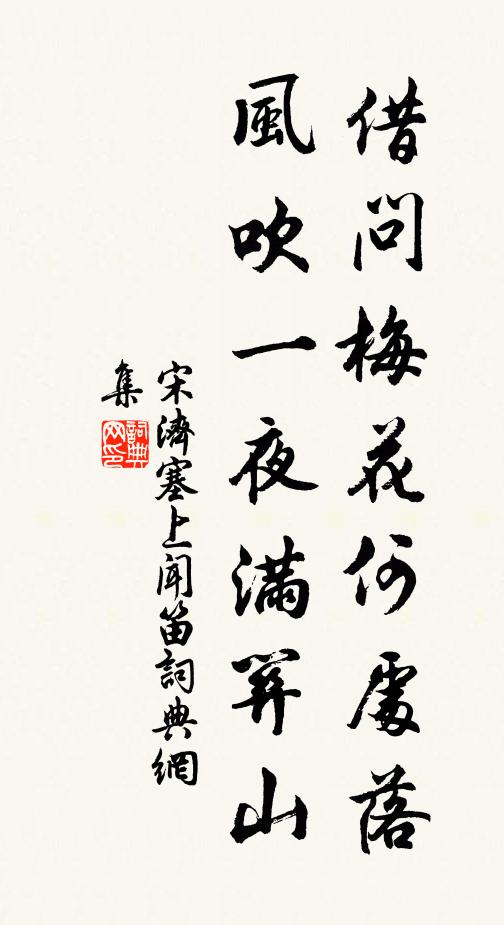 借問梅花何處落
風吹一夜滿關山
宋濟塞上聞笛詞典網
集
詞典
网印